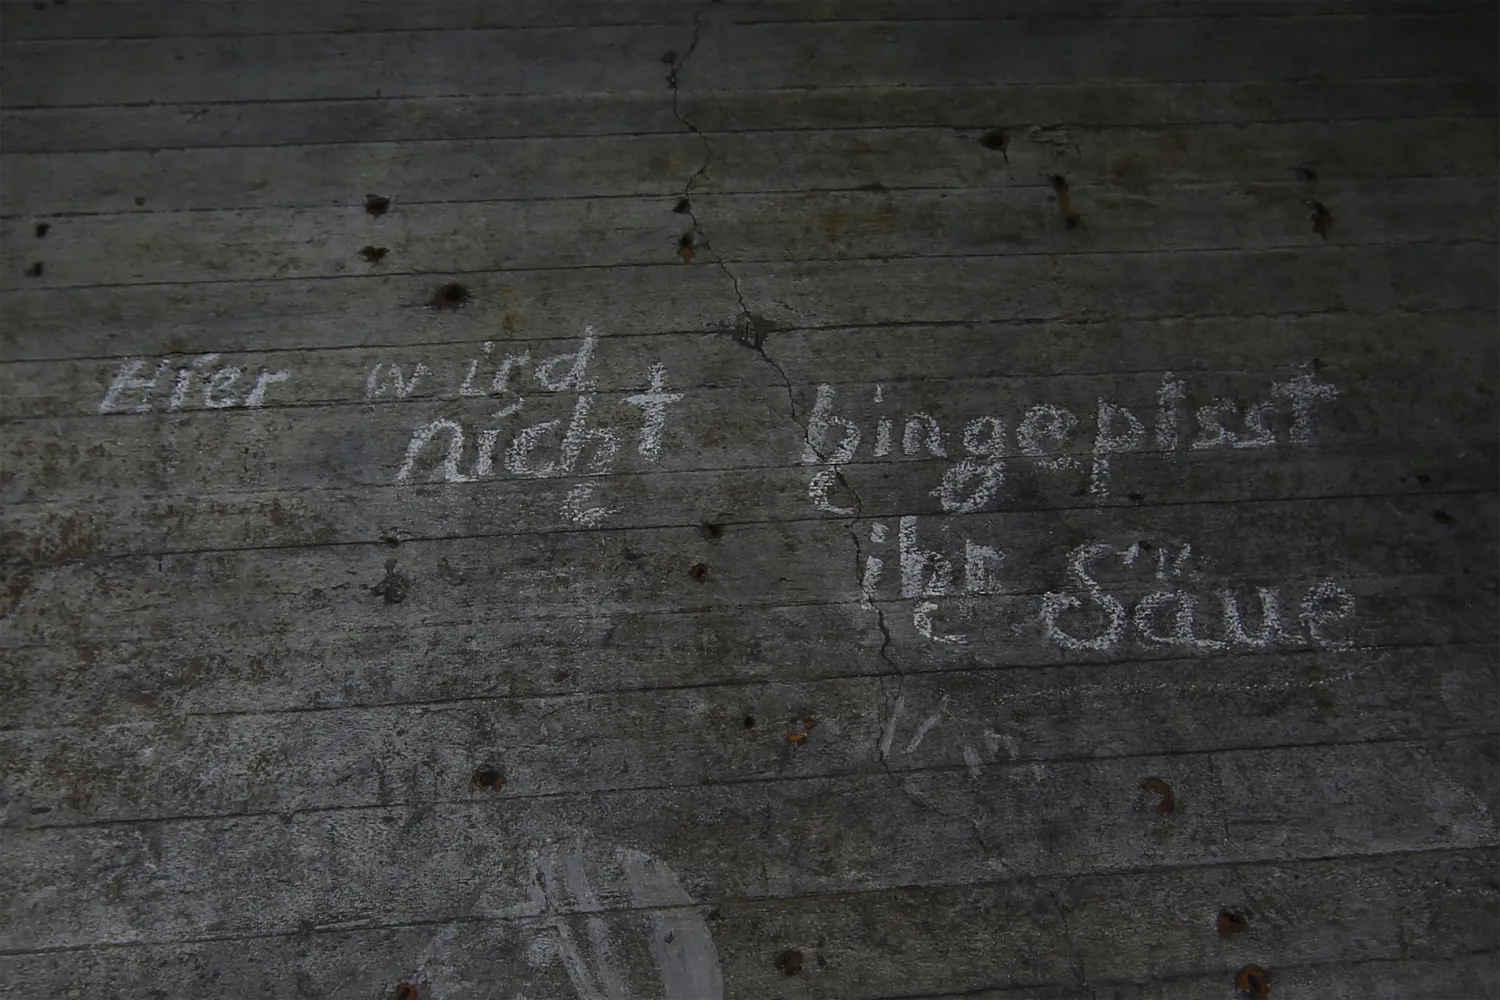 Hier wird
nicht hingepisst
ihr Säue